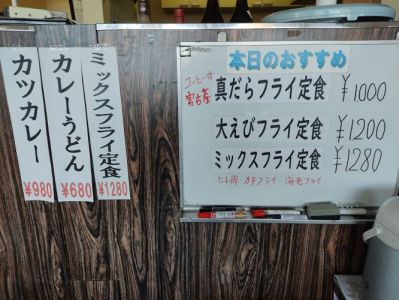 カツカレー
¥980
カレーうどん
¥680
ミックスフライ定食
¥1280
本日のおすすめ
コーヒー付
宮古産
真だらフライ定食 ¥1000
大えびフライ定食 ¥1,200
ミックスフライ定食 ¥1280
ヒレ肉 カキフライ 海老フライ